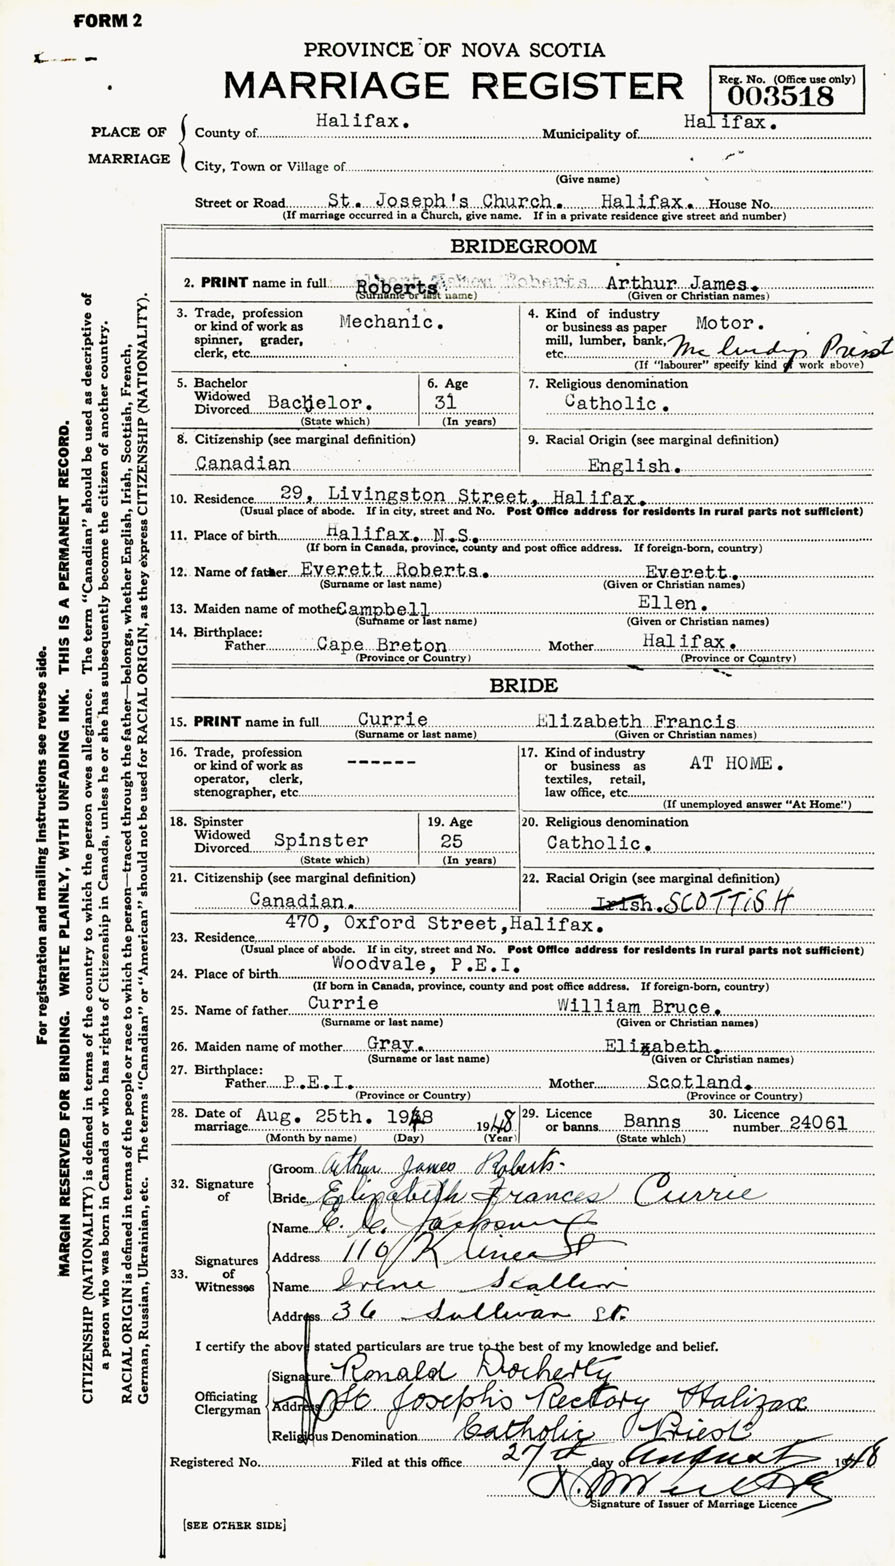 FORM 2
PROVINCE OF NOVA SCOTIA
MARRIAGE REGISTER
Reg. No. (Office use only)
003518
PLACE OF MARRIAGE
County of Halifax. Municipality of Halifax.
City, Town or Village of
(Give name)
Street or Road St. Joseph's Church. Halifax. House No.
(If marriage occurred in a Church, give name. If in a private residence give street and number)
BRIDEGROOM
2. PRINT name in full Roberts Arthur James.
(Surname or last name) (Given or Christian names)
3. Trade, profession or kind of work as spinner, grader, clerk, etc. Mechanic.
4. Kind of industry or business as paper mill, lumber, bank, etc. Motor.
(If "labourer" specify kind of work above)
5. Bachelor Widowed Divorced Bachelor.
(State which)
6. Age 31
(In years)
7. Religious denomination
Catholic.
8. Citizenship (see marginal definition)
Canadian
9. Racial Origin (see marginal definition)
English.
10. Residence 29, Livingston Street, Halifax.
(Usual place of abode. If in city, street and No. Post Office address for residents in rural parts not sufficient)
11. Place of birth Halifax. N.S.
(If born in Canada, province, county and post office address. If foreign-born, country)
12. Name of father Everett Roberts. Everett.
(Surname or last name) (Given or Christian names)
13. Maiden name of mother Campbell Ellen.
(Surname or last name) (Given or Christian names)
14. Birthplace:
Father Cape Breton Mother Halifax.
(Province or Country) (Province or Country)
BRIDE
15. PRINT name in full Currie Elizabeth Francis
(Surname or last name) (Given or Christian names)
16. Trade, profession or kind of work as operator, clerk, stenographer, etc. ------
17. Kind of industry or business as textiles, retail, law office, etc. AT HOME.
(If unemployed answer "At Home")
18. Spinster Widowed Divorced Spinster
(State which)
19. Age 25
(In years)
20. Religious denomination
Catholic.
21. Citizenship (see marginal definition)
Canadian.
22. Racial Origin (see marginal definition)
Irish. SCOTTISH
23. Residence 470, Oxford Street, Halifax.
(Usual place of abode. If in city, street and No. Post Office address for residents in rural parts not sufficient)
24. Place of birth Woodvale, P.E.I.
(If born in Canada, province, county and post office address. If foreign-born, country)
25. Name of father Currie William Bruce.
(Surname or last name) (Given or Christian names)
26. Maiden name of mother Gray. Elizabeth.
(Surname or last name) (Given or Christian names)
27. Birthplace:
Father P.E.I. Mother Scotland.
(Province or Country) (Province or Country)
28. Date of marriage Aug. 25th. 1948 1948
(Month by name) (Day) (Year)
29. Licence or banns Banns
(State which)
30. Licence number 24061
32. Signature of
Groom Arthur James Roberts.
Bride Elizabeth Frances Currie
33. Signatures of Witnesses
Name
Address 110
Name Irene
Address 36 Sullivan St.
I certify the above stated particulars are true to the best of my knowledge and belief.
Officiating Clergyman
Signature Ronald Docherty
Address St Joseph's Rectory Halifax
Religious Denomination Catholic Priest
Registered No. Filed at this office 27th day of August 1948
Signature of Issuer of Marriage Licence
[SEE OTHER SIDE]
For registration and mailing instructions see reverse side.
MARGIN RESERVED FOR BINDING. WRITE PLAINLY, WITH UNFADING INK. THIS IS A PERMANENT RECORD.
CITIZENSHIP (NATIONALITY) is defined in terms of the country to which the person owes allegiance. The term "Canadian" should be used as descriptive of
a person who was born in Canada or who has rights of Citizenship in Canada, unless he or she has subsequently become the citizen of another country.
RACIAL ORIGIN is defined in terms of the people or race to which the person—traced through the father—belongs, whether English, Irish, Scottish, French,
German, Russian, Ukrainian, etc. The terms "Canadian" or "American" should not be used for RACIAL ORIGIN, as they express CITIZENSHIP (NATIONALITY).